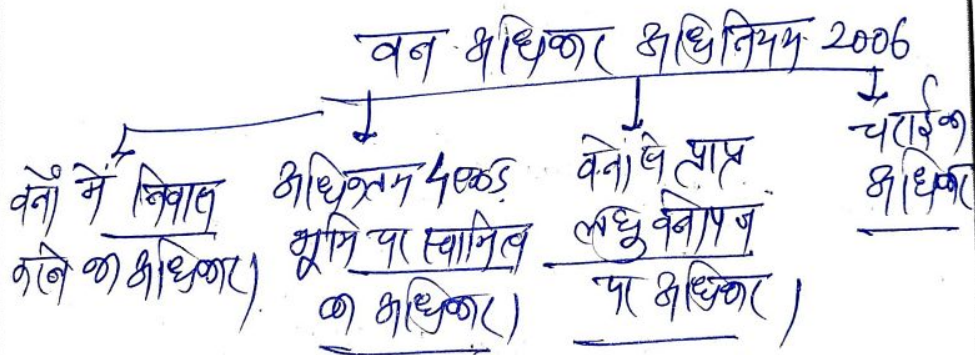 वन अधिकार अधिनियम 2006
वनों में निवास
करने का अधिकार।
अधिकतम 4 एकड़
भूमि पर स्वामित्व
का अधिकार।
वनों से प्राप्त
लघु वनोपज
पर अधिकार।
चराई का
अधिकार